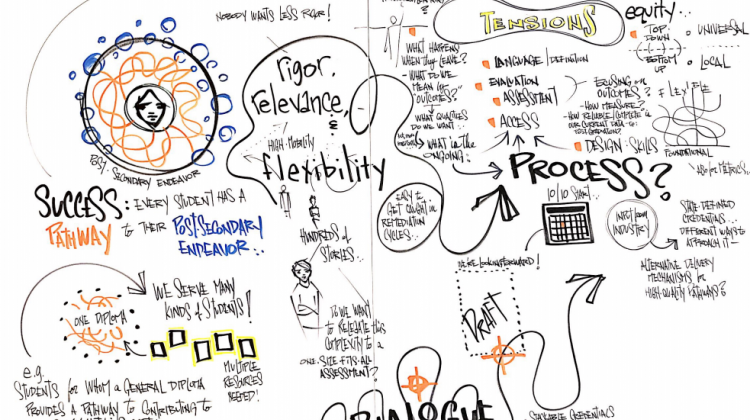 NOBODY WANTS LESS RIGOR!
POST-SECONDARY ENDEAVOR
SUCCESS: EVERY STUDENT HAS A
PATHWAY to THEIR POSTSECONDARY
ENDEAVOR...
ONE DIPLOMA
WE SERVE MANY
KINDS of STUDENTS!
MULTIPLE
RESOURCES
NEEDED!
e.g.
STUDENTS for WHOM a GENERAL DIPLOMA
PROVIDES A PATHWAY to CONTRIBUTING to
rigor,
relevance,
HIGH-MOBILITY
flexibility
HUNDREDS of
STORIES...
DO WE WANT
to RELEGATE this
COMPLEXITY to a
ONE-SIZE FITS-ALL
ASSESSMENT?
EASY to
GET CAUGHT in
REMEDIATION
CYCLES...
WHAT HAPPENS
WHEN they LEAVE?
- WHAT DO WE
MEAN by
"OUTCOMES?"
WHAT QUALITIES
DO WE WANT...
WHAT is the
ONGOING...
PROCESS?
TENSIONS
LANGUAGE / DEFINITION
EVALUATION
ASSESSMENT
ACCESS
FOCUSING on
OUTCOMES?
- HOW MEASURE?
- HOW RELIABLE/COMPLETE is
OUR CURRENT DATA
DESIGN-SKILLS
equity...
TOP
DOWN
BOTTOM
UP
UNIVERSAL
LOCAL
FLEXIBLE
FOUNDATIONAL
ALSO for METRICS...
10/10 START...
INPUT from
INDUSTRY
STATE-DEFINED
CREDENTIALS...
DIFFERENT WAYS to
APPROACH IT -
ALTERNATIVE DELIVERY
MECHANISMS for
HIGH-QUALITY PATHWAYS?
DRAFT
DIALOGUE
- STACKABLE CREDENTIALS